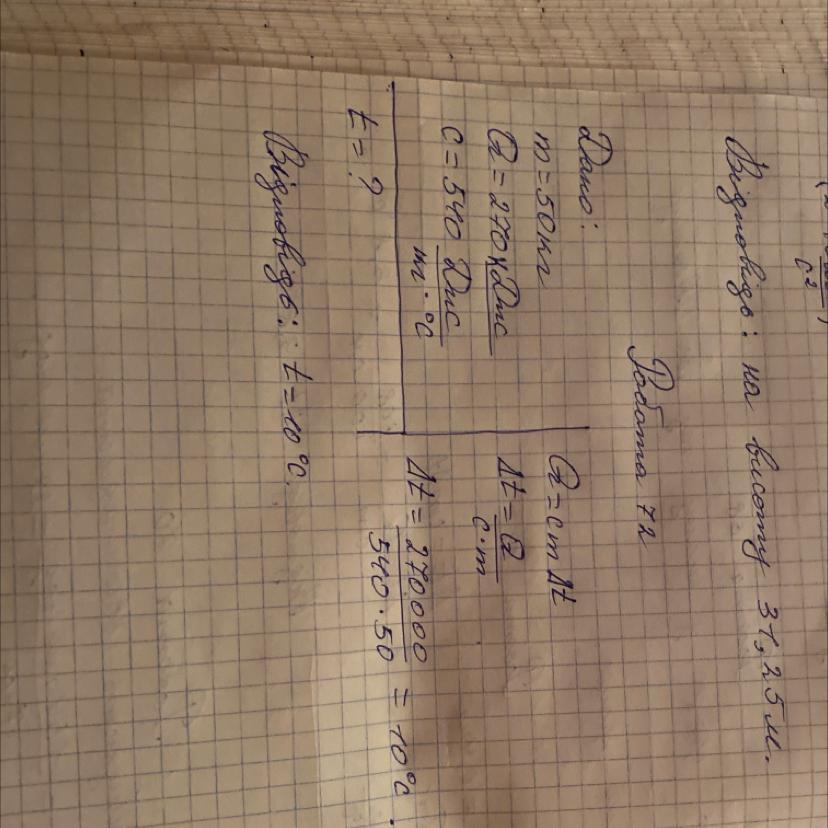 с²
Відповідь: на висоту 31,25 м.
Робота 72
Дано:
m = 50 кг
Q = 270 кДж
c = 540 Дж
кг · °C
t = ?
Q = cmΔt
Δt = Q
c · m
Δt = 270000
540 · 50
= 10°C.
Відповідь: t = 10°C.